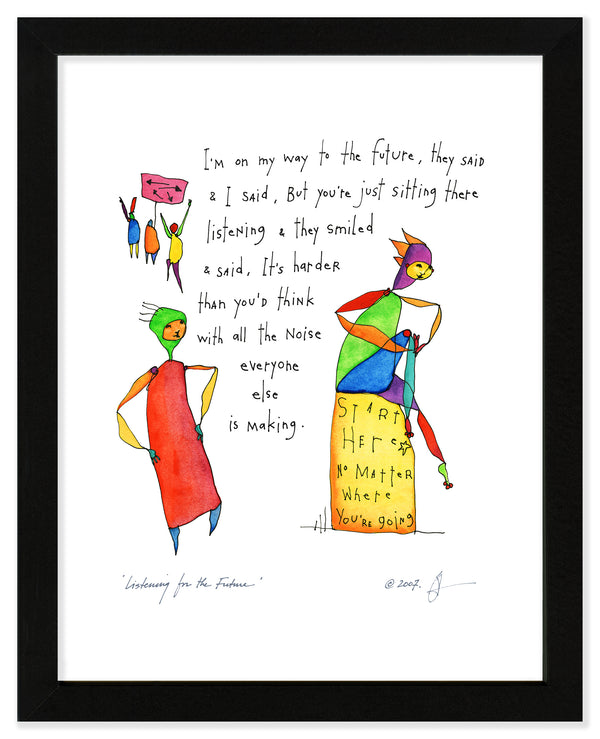 I'm on my way to the future, they said
& I said, But you're just sitting there
listening & they smiled
& said, It's harder
than you'd think
with all the noise
everyone
else
is making.
START
Here
No Matter
Where
You're going
"Listening for the Future"
© 2007.